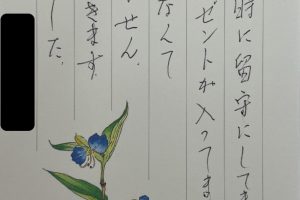 時に留守にしてま
ゼントが入ってま
なんて
せん。
きます
した。